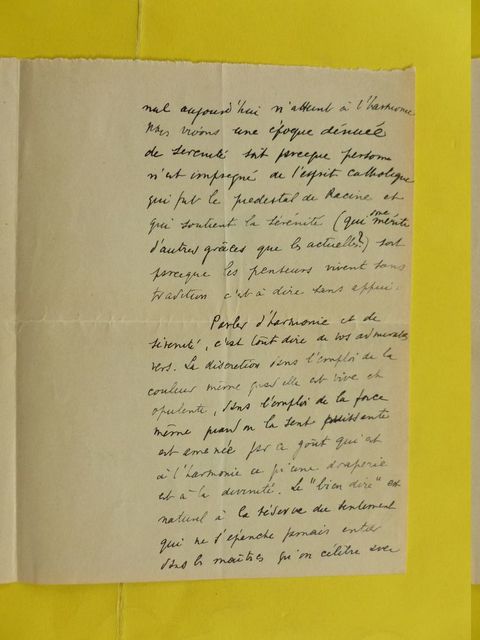 nul aujourd'hui n'atteint à l'harmonie
Nous vivons une époque dénuée
de sérénité soit parceque personne
n'est impregné de l'esprit catholique
qui fut le piedestal de Racine et
qui soutient la sérénité (qui me mérite
d'autres grâces que les actuelles?) soit
parceque les penseurs vivent sans
tradition c'est à dire sans appui.
Parler d'harmonie et de
sérénité, c'est tout dire de vos admirables
vers. La discretion dans l'emploi de la
couleur même quand elle est vive et
opulente, dans l'emploi de la force
même quand on la sent puissante
est amenée par ce goût qui est
à l'harmonie ce qu'une draperie
est à la divinité. Le "bien dire" est
naturel à la réserve du sentiment
qui ne s'épanche jamais
dans les maîtres qu'on célèbre avec